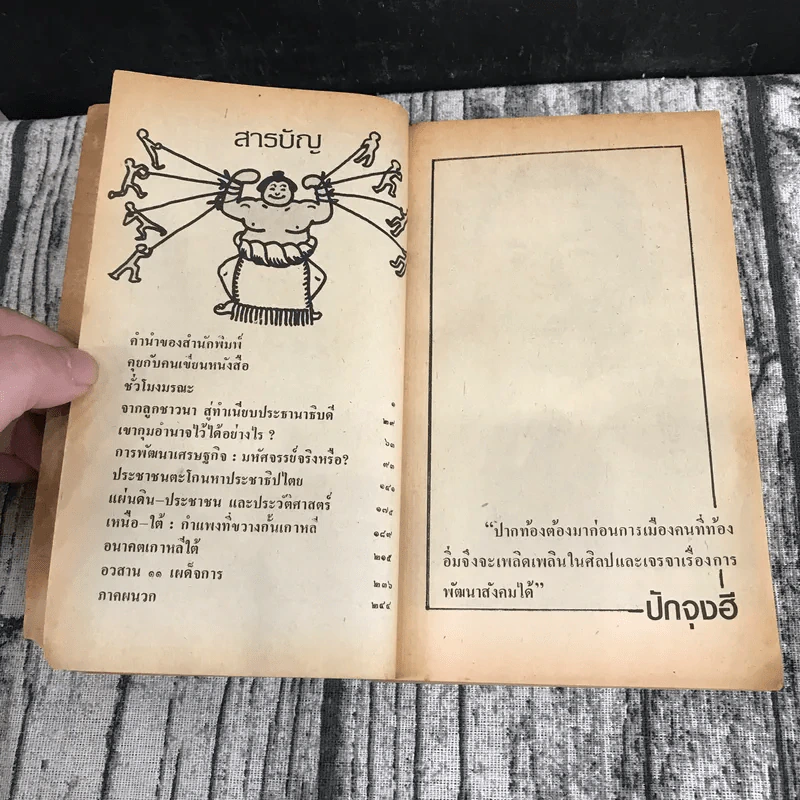 สารบัญ
คำนำของสำนักพิมพ์
คุยกับคนเขียนหนังสือ
ชั่วโมงมรณะ ๑
จากลูกชาวนา สู่ทำเนียบประธานาธิบดี ๒๙
เขากุมอำนาจไว้ได้อย่างไร ? ๖๓
การพัฒนาเศรษฐกิจ : มหัศจรรย์จริงหรือ? ๙๓
ประชาชนตะโกนหาประชาธิปไตย ๑๔๑
แผ่นดิน-ประชาชน และประวัติศาสตร์ ๑๗๕
เหนือ-ใต้ : กำแพงที่ขวางกั้นเกาหลี ๑๘๙
อนาคตเกาหลีใต้ ๒๑๕
อวสาน ๑๑ เผด็จการ ๒๓๖
ภาคผนวก ๒๕๔
“ปากท้องต้องมาก่อนการเมืองคนที่ท้อง
อิ่มจึงจะเพลิดเพลินในศิลปและเจรจาเรื่องการ
พัฒนาสังคมได้”
-ปักจุงฮี